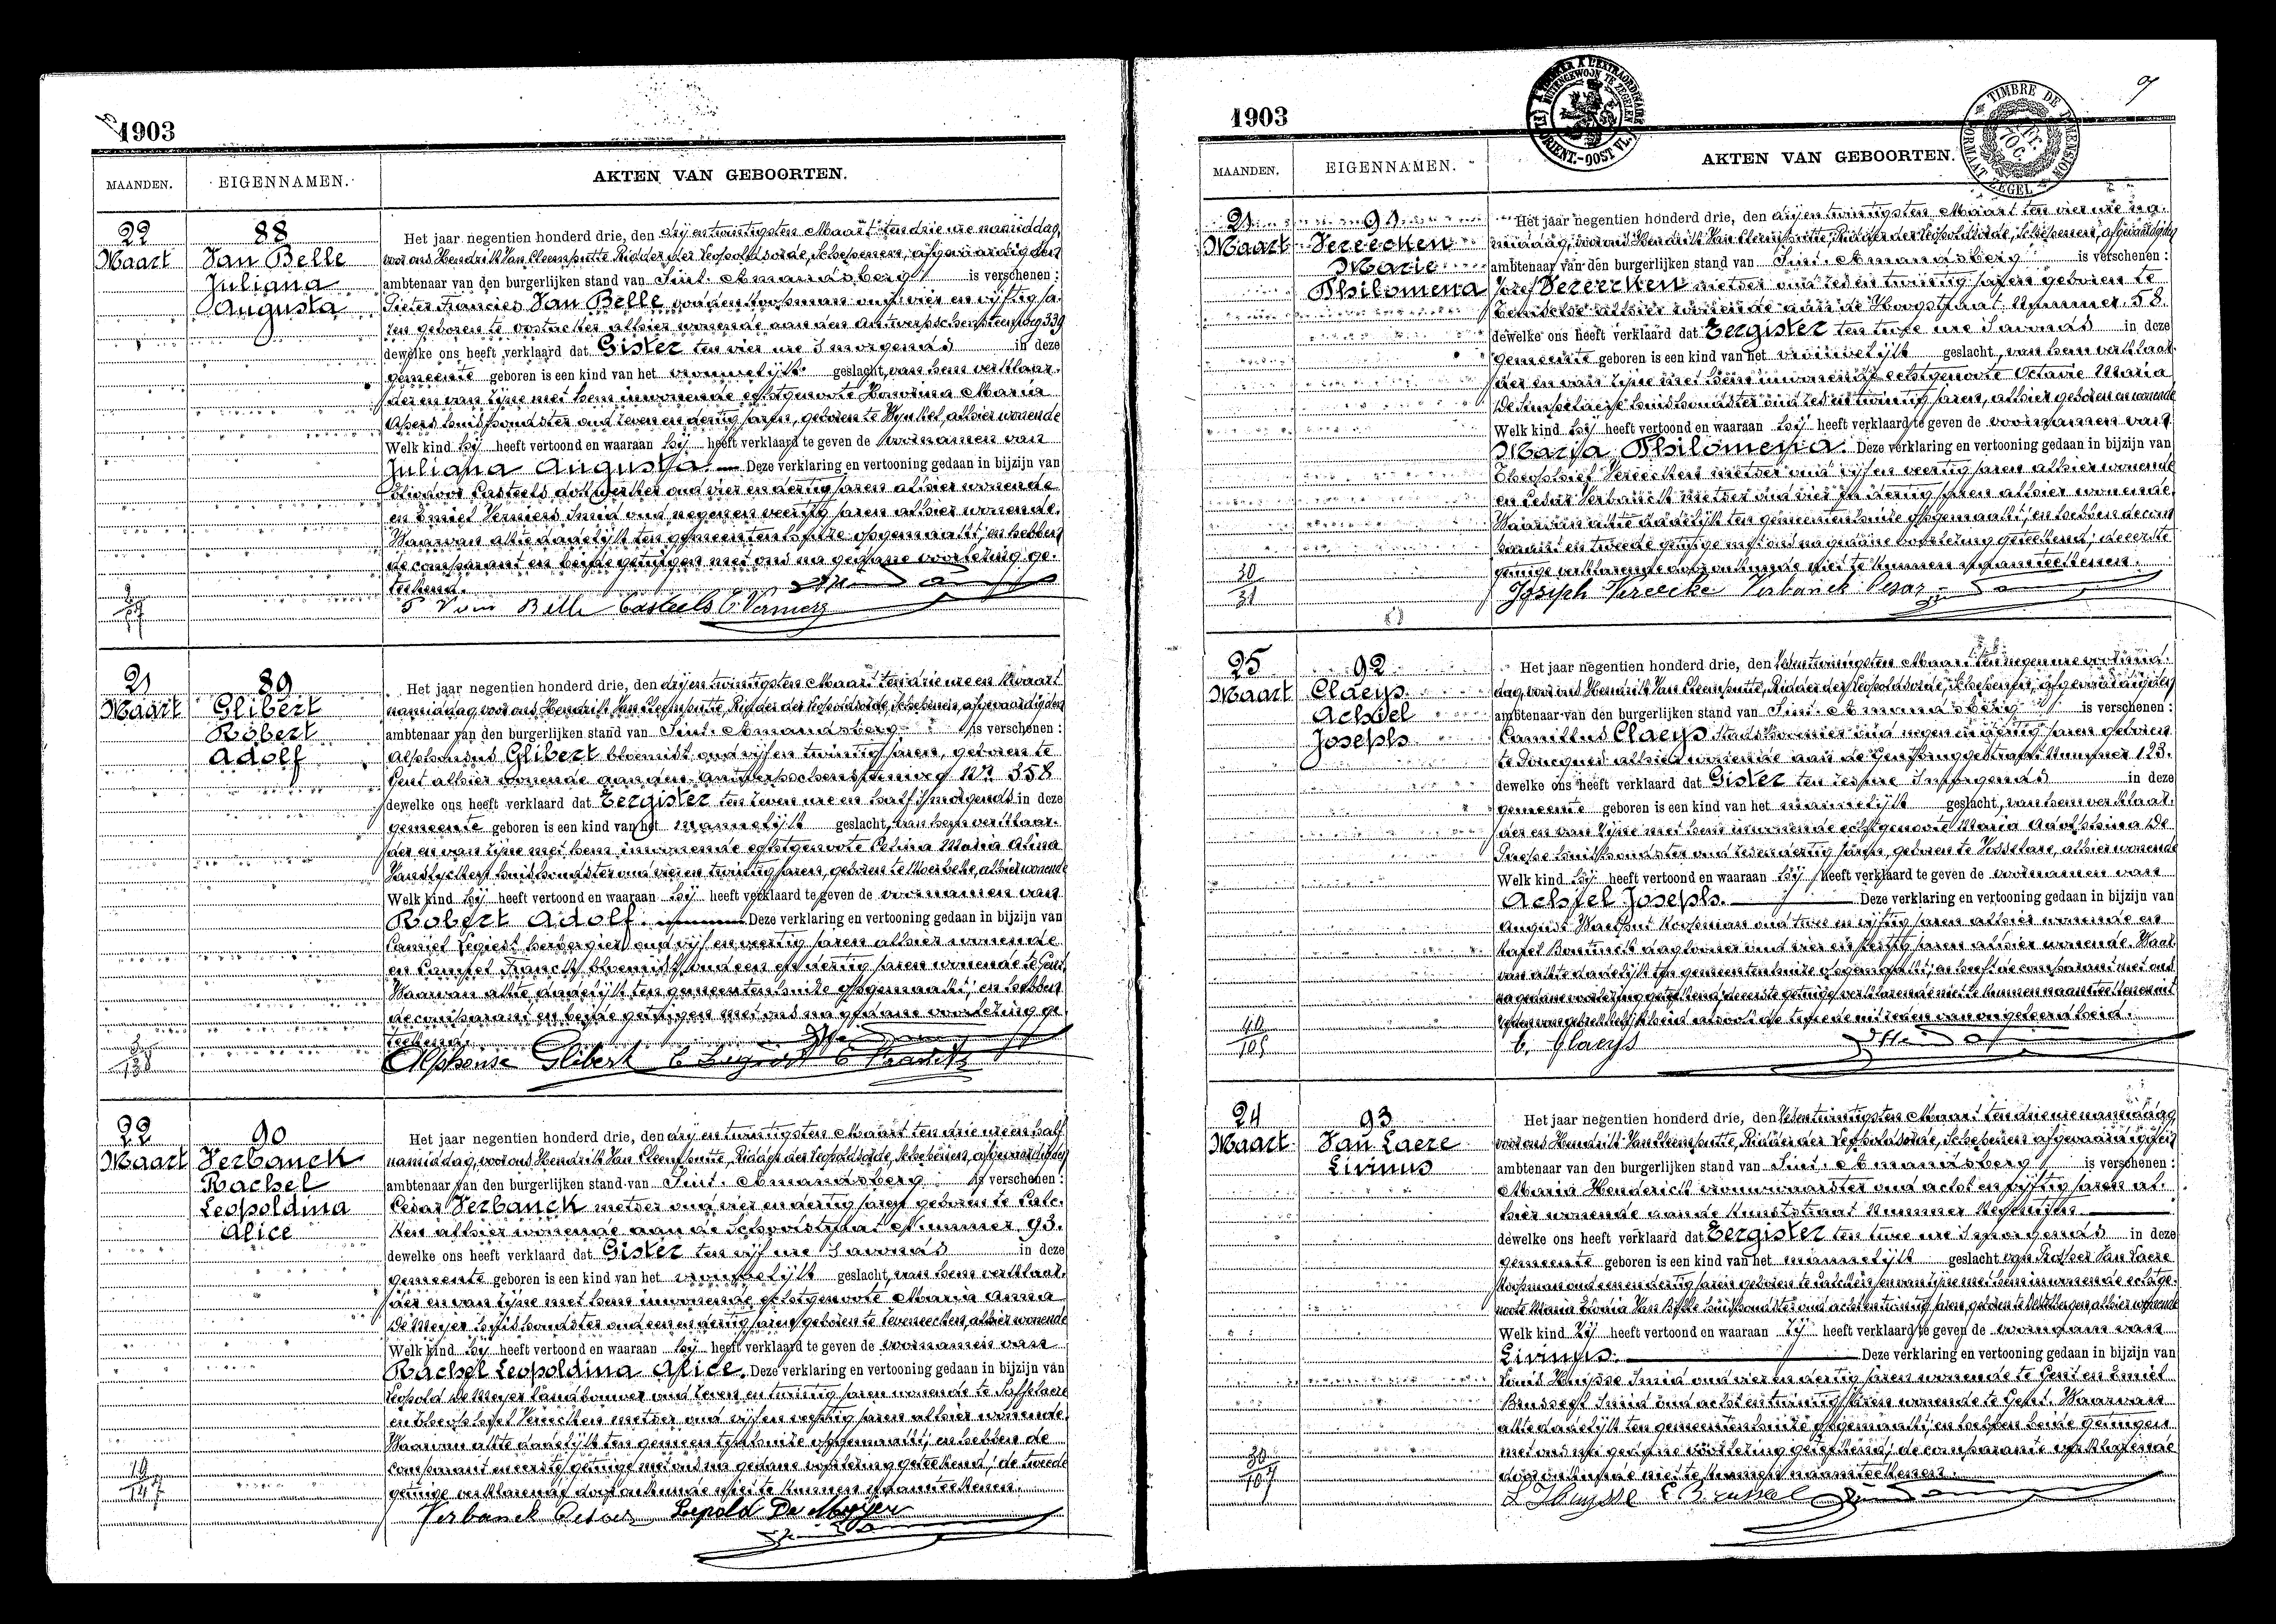 1903
MAANDEN.
EIGENNAMEN.
AKTEN VAN GEBOORTEN.
22
Maart
88
Van Belle
Juliana
Augusta
Het jaar negentien honderd drie, den drij en twintigsten Maart ten drie ure namiddag,
voor ons Hendrik Van Cleemputte, Ridder der Leopoldsorde, Schepenen, afgevaardigden
ambtenaar van den burgerlijken stand van Sint-Amandsberg is verschenen :
Pieter Francies Van Belle koopman oud vier en vijftig ja-
ren geboren te Oostacker alhier wonende aan den Antwerpschensteenweg 339
dewelke ons heeft verklaard dat Gister ten vier ure 's morgends in deze
gemeente geboren is een kind van het vrouwelijk geslacht, van hem verklaar-
der en van zijne met hem inwonende echtgenoote Honorina Maria
huishoudster oud zeven en dertig jaren, geboren te alhier wonende
Welk kind hij heeft vertoond en waaraan hij heeft verklaard te geven de voornamen van
Juliana Augusta. Deze verklaring en vertooning gedaan in bijzijn van
Casteels oud vier en dertig jaren alhier wonende
en Emiel Verniers smid oud negen en veertig jaren alhier wonende.
Waarvan akte dadelijk ten gemeentenhuize opgemaakt; en hebben
de comparant en beide getuigen met ons na gedane voorlezing ge-
teekend.
P Van Belle Casteels E. Verniers
21
Maart
89
Glibert
Robert
Adolf
Het jaar negentien honderd drie, den drij en twintigsten Maart ten drie ure en kwaart
namiddag, voor ons Hendrik Van Cleemputte, Ridder der Leopoldsorde, Schepenen, afgevaardigden
ambtenaar van den burgerlijken stand van Sint-Amandsberg is verschenen :
Alphonsus Glibert bloemist oud vijf en twintig jaren, geboren te
Gent alhier wonende aan den Antwerpschensteenweg Nr. 358
dewelke ons heeft verklaard dat Eergister ten zeven ure en half 's morgends in deze
gemeente geboren is een kind van het mannelijk geslacht, van hem verklaar-
der en van zijne met hem inwonende echtgenoote Celina Maria Alina
huishoudster oud vier en twintig jaren, geboren te Moerbeke, alhier wonende
Welk kind hij heeft vertoond en waaraan hij heeft verklaard te geven de voornamen van
Robert Adolf. Deze verklaring en vertooning gedaan in bijzijn van
Camiel herbergier oud vijf en veertig jaren alhier wonende
en Camiel Franck bloemist oud een en dertig jaren wonende te Gent.
Waarvan akte dadelijk ten gemeentenhuize opgemaakt; en hebben
de comparant en beide getuigen met ons na gedane voorlezing ge-
teekend.
Alphonse Glibert
22
Maart
90
Verbanck
Rachel
Leopoldina
Alice
Het jaar negentien honderd drie, den drij en twintigsten Maart ten drie ure en half
namiddag, voor ons Hendrik Van Cleemputte, Ridder der Leopoldsorde, Schepenen, afgevaardigden
ambtenaar van den burgerlijken stand van Sint-Amandsberg is verschenen :
Cesar Verbanck metser oud vier en dertig jaren geboren te Calc-
ken alhier wonende aan de Schoolstraat Nummer 93.
dewelke ons heeft verklaard dat Gister ten vijf ure 's avonds in deze
gemeente geboren is een kind van het vrouwelijk geslacht, van hem verklaar-
der en van zijne met hem inwonende echtgenoote Maria Anna
De Meyer huishoudster oud een en dertig jaren geboren te Zeveneecken, alhier wonende
Welk kind hij heeft vertoond en waaraan hij heeft verklaard te geven de voornamen van
Rachel Leopoldina Alice. Deze verklaring en vertooning gedaan in bijzijn van
Leopold De Meyer landbouwer oud zeven en twintig jaren wonende te Saffelaere
en Theophiel Vereecken metser oud vijf en veertig jaren alhier wonende.
Waarvan akte dadelijk ten gemeentenhuize opgemaakt; en hebben de
comparant en eerste getuige met ons na gedane voorlezing geteekend; de tweede
getuige verklarende door onkunde niet te kunnen naamteekenen.
Verbanck Cesar Leopold De Meyer
1903
TIMBRE DE DIMENSION
FORMAAT ZEGEL
MAANDEN.
EIGENNAMEN.
AKTEN VAN GEBOORTEN.
21
Maart
91
Vereecken
Marie
Philomena
30
31
Het jaar negentien honderd drie, den drij en twintigsten Maart ten vier ure na-
middag, voor ons Hendrik Van Cleemputte, Ridder der Leopoldsorde, Schepenen, afgevaardigden
ambtenaar van den burgerlijken stand van Sint-Amandsberg is verschenen :
Jozef Vereecken metser oud zes en twintig jaren geboren te
alhier wonende aan de Hoogstraat Nummer 58
dewelke ons heeft verklaard dat Eergister ten twee ure 's avonds in deze
gemeente geboren is een kind van het vrouwelijk geslacht, van hem verklaar-
der en van zijne met hem inwonende echtgenoote Octavie Maria
De Simpelaere huishoudster oud zes en twintig jaren, alhier geboren en wonende
Welk kind hij heeft vertoond en waaraan hij heeft verklaard te geven de voornamen van
Maria Philomena. Deze verklaring en vertooning gedaan in bijzijn van
Theophiel Vereecken metser oud vijf en veertig jaren alhier wonende
en Cesar Verbanck metser oud vier en dertig jaren alhier wonende.
Waarvan akte dadelijk ten gemeentenhuize opgemaakt; en hebben de com-
parant en tweede getuige met ons na gedane voorlezing geteekend; de eerste
getuige verklarende door onkunde niet te kunnen naamteekenen.
Joseph Vereecke Verbanck Cesar
25
Maart
92
Claeys
Achiel
Joseph
Het jaar negentien honderd drie, den Maart ten negen ure voormid-
dag, voor ons Hendrik Van Cleemputte, Ridder der Leopoldsorde, Schepenen, afgevaardigden
ambtenaar van den burgerlijken stand van Sint-Amandsberg is verschenen :
Camillus Claeys oud negen en dertig jaren geboren
te alhier wonende aan de Nummer 123.
dewelke ons heeft verklaard dat Gister ten zes ure 's morgends in deze
gemeente geboren is een kind van het mannelijk geslacht, van hem verklaar-
der en van zijne met hem inwonende echtgenoote Maria Adolphina De
huishoudster oud zes en dertig jaren, geboren te Vosselare, alhier wonende
Welk kind hij heeft vertoond en waaraan hij heeft verklaard te geven de voornamen van
Achiel Joseph. Deze verklaring en vertooning gedaan in bijzijn van
August koopman oud twee en vijftig jaren alhier wonende en
Karel Bontinck daglooner oud vier en jaren alhier wonende. Waar-
van akte dadelijk ten gemeentenhuize opgemaakt; en heeft de comparant met ons
na gedane voorlezing geteekend; de eerste getuige verklarende niet te kunnen naamteekenen uit
reden van de tweede uit reden van ongeleerdheid.
C. Claeys
24
Maart
93
Van Laere
Livinus
30
107
Het jaar negentien honderd drie, den Maart ten drie ure namiddag
voor ons Hendrik Van Cleemputte, Ridder der Leopoldsorde, Schepenen afgevaardigden
ambtenaar van den burgerlijken stand van Sint-Amandsberg is verschenen :
Maria Henderick vroedvrouw oud acht en vijftig jaren al-
hier wonende aan de Kunststraat Nummer
dewelke ons heeft verklaard dat Eergister ten twee ure 's morgends in deze
gemeente geboren is een kind van het mannelijk geslacht van Prosper Van Laere
koopman oud een en dertig jaren geboren te Calcken en van zijne met hem inwonende echtge-
noote Maria huishoudster oud acht en twintig jaren, geboren te alhier wonende
Welk kind zij heeft vertoond en waaraan zij heeft verklaard te geven de voornaam van
Livinus. Deze verklaring en vertooning gedaan in bijzijn van
Louis Huysse smid oud vier en dertig jaren wonende te Gent en Emiel
Brusseel smid oud acht en twintig jaren wonende te Gent. Waarvan
akte dadelijk ten gemeentenhuize opgemaakt; en hebben beide getuigen
met ons na gedane voorlezing geteekend; de comparante verklarende
door onkunde niet te kunnen naamteekenen.
L Huysse E. Brusseel